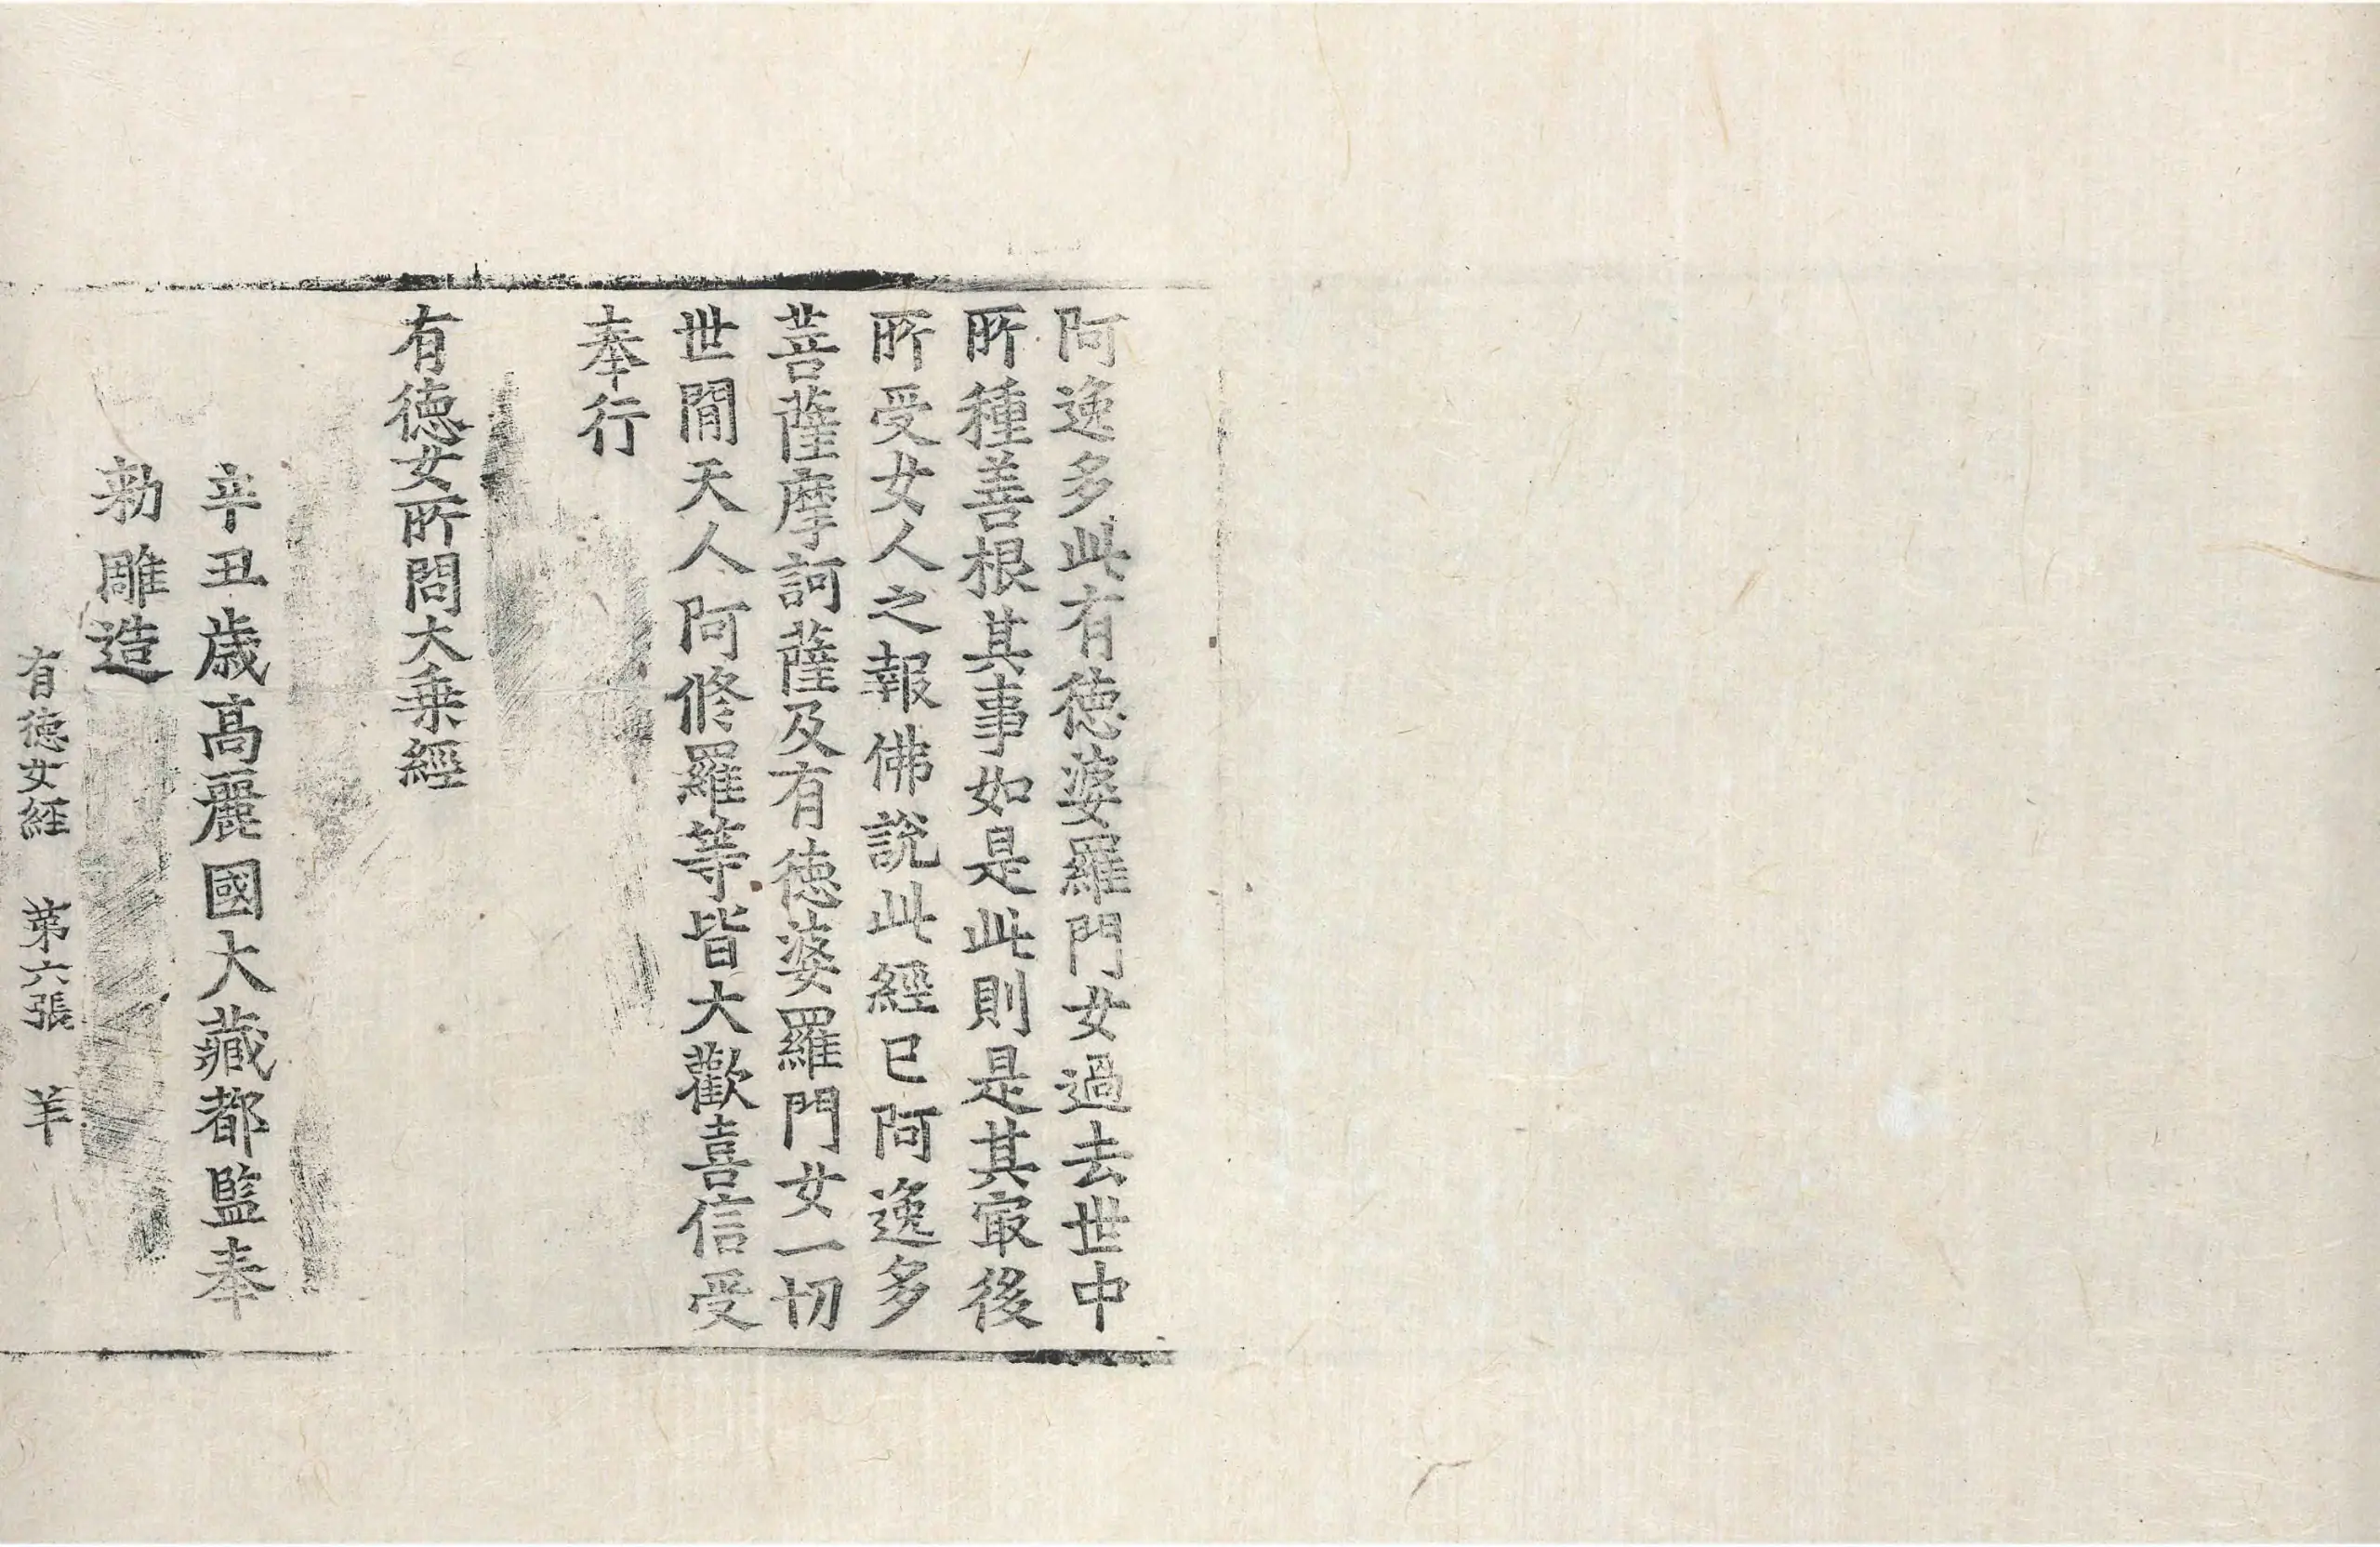 阿逸多此有德婆羅門女過去世中
所種善根其事如是此則是其㝡後
所受女人之報佛說此經已阿逸多
菩薩摩訶薩及有德婆羅門女一切
世閒天人阿修羅等皆大歡喜信受
奉行
有德女所問大乗經
辛丑歳高麗國大藏都監奉
勅雕造
有德女經 第六張 羊